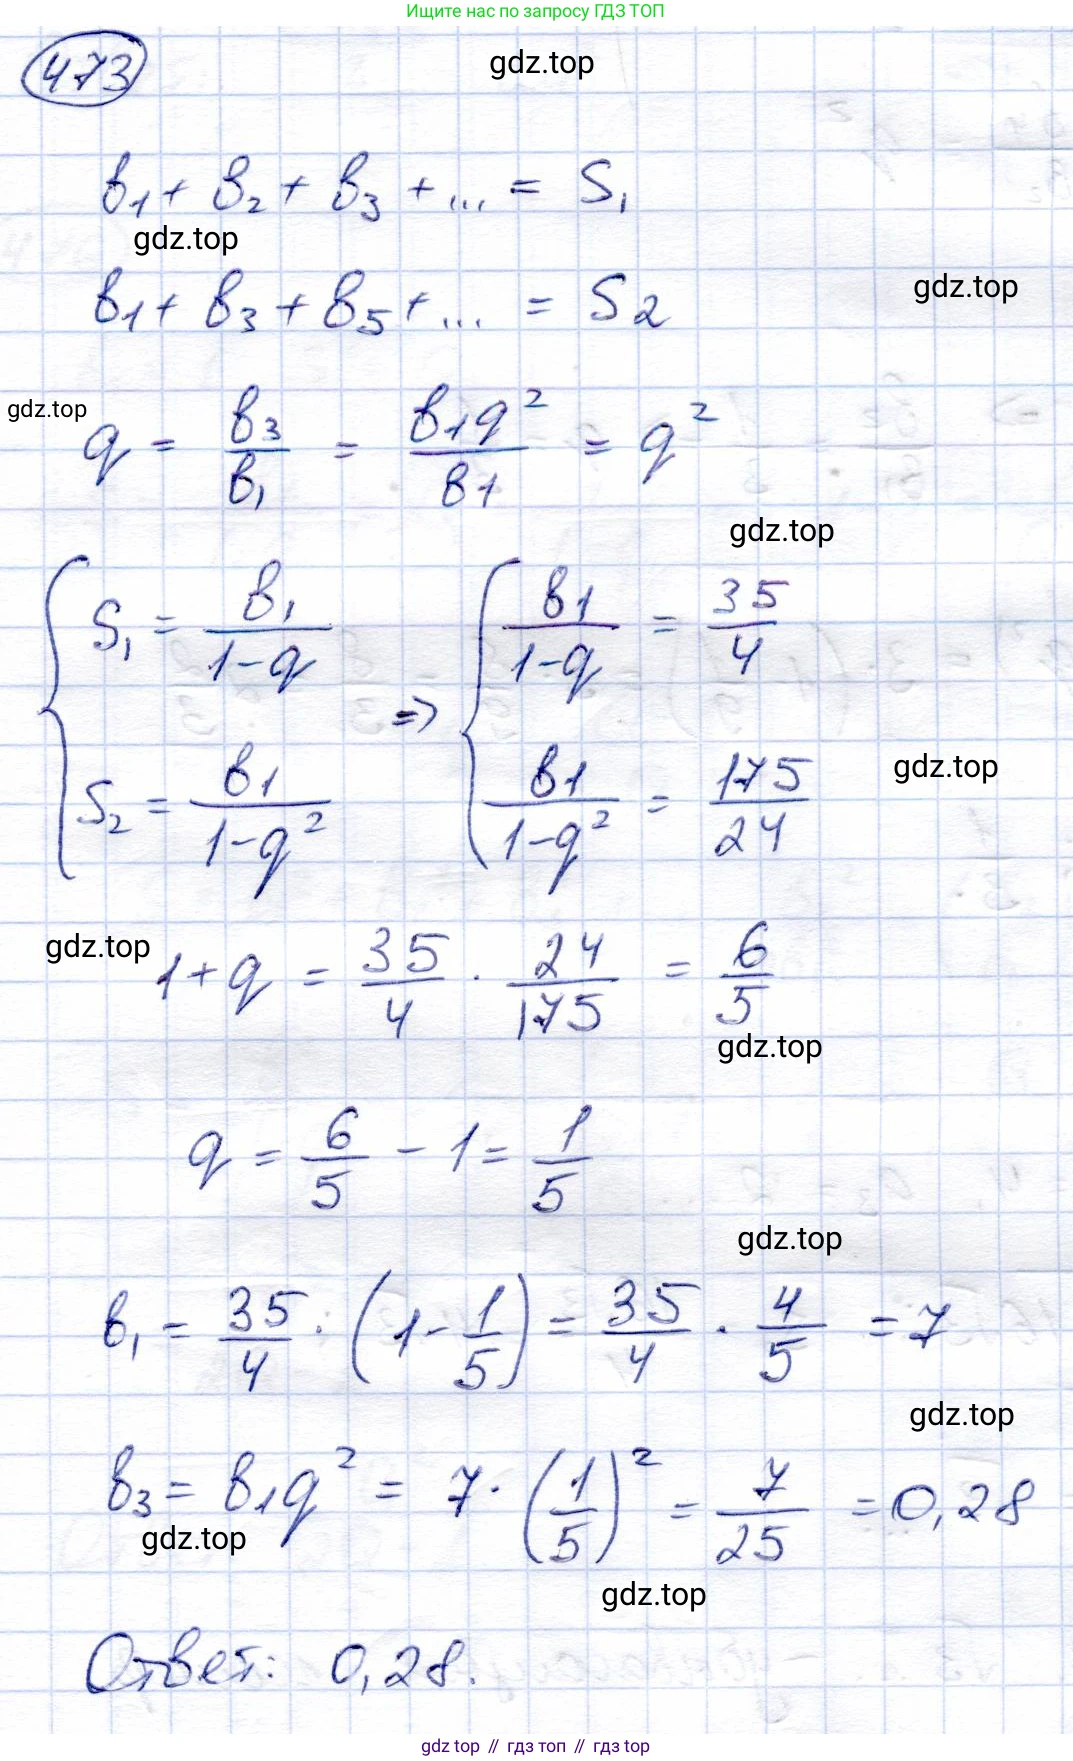 Ищите нас по запросу ГДЗ ТОП
473
gdz.top
в₁ + в₂ + в₃ + ... = S₁
gdz.top
в₁ + в₃ + в₅ + ... = S₂
gdz.top
gdz.top
q = в₃/в₁ = в₁q²/в₁ = q²
gdz.top
{ S₁ = в₁/(1-q) => { в₁/(1-q) = 35/4
{ S₂ = в₁/(1-q²) { в₁/(1-q²) = 175/24
gdz.top
gdz.top
1+q = 35/4 · 24/175 = 6/5
gdz.top
q = 6/5 - 1 = 1/5
gdz.top
в₁ = 35/4 : (1 - 1/5) = 35/4 · 4/5 = 7
gdz.top
в₃ = в₁q² = 7 · (1/5)² = 7/25 = 0,28
gdz.top
gdz.top
Ответ: 0,28.
gdz top // гдз топ // gdz top